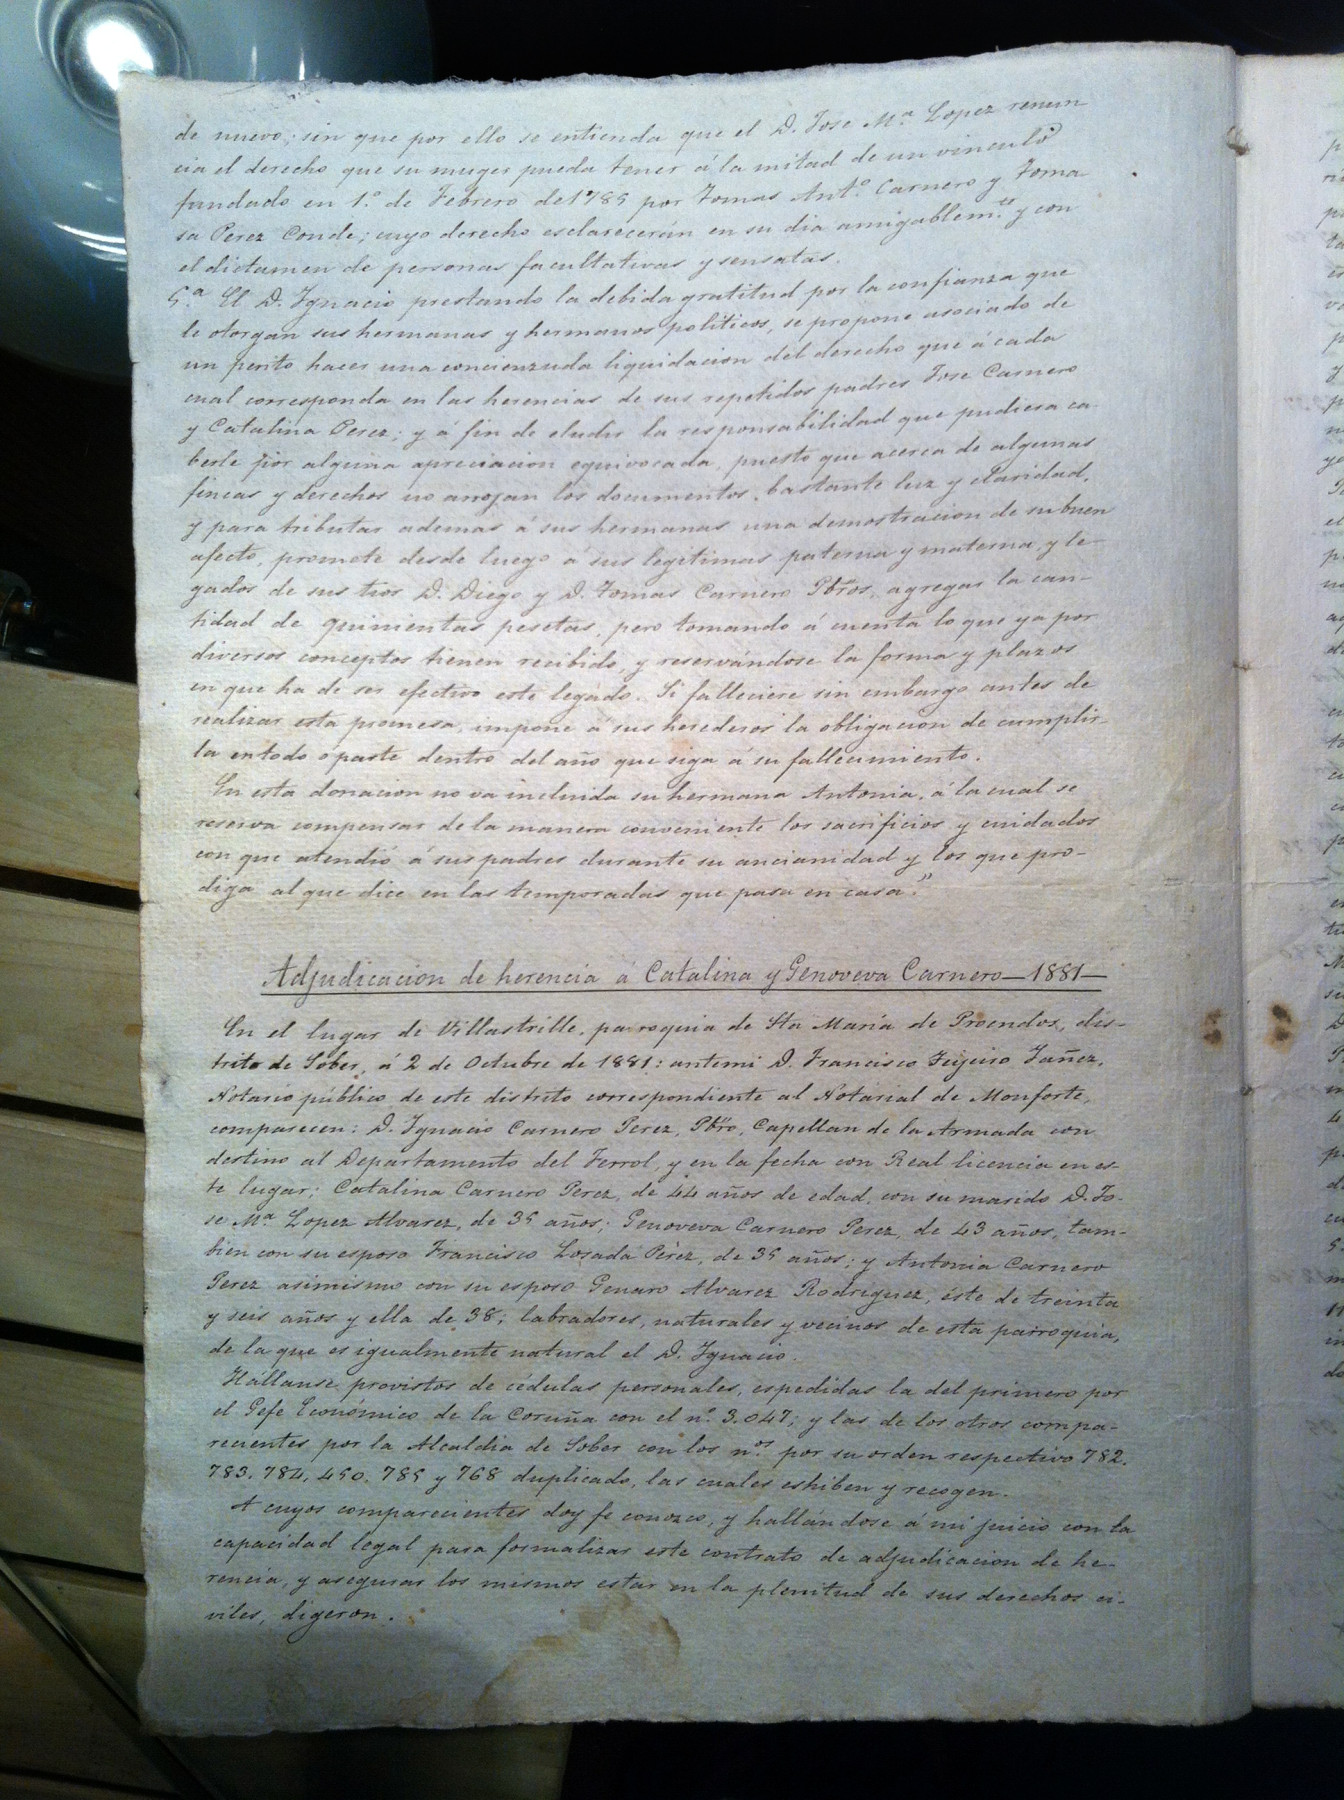 de nuevo; sin que por ello se entienda que el D. Jose Mª Lopez renun
cia el derecho que su muger pueda tener á la mitad de un vinculo
fundado en 1º de Febrero de 1785 por Tomas Antº Carnero y Toma
sa Perez Conde; cuyo derecho esclarecerán en su dia amigablemte y con
el dictamen de personas facultativas y sensatas.
5ª El D. Ygnacio prestando la debida gratitud por la confianza que
le otorgan sus hermanas y hermanos politicos, se propone asociado de
un perito hacer una concienzuda liquidacion del derecho que á cada
cual corresponda en las herencias de sus repetidos padres Jose Carnero
y Catalina Perez; y á fin de eludir la responsabilidad que pudiera ca
berle por alguna apreciacion equivocada, puesto que acerca de algunas
fincas y derechos no arrojan los documentos bastante luz y claridad,
y para tributar ademas á sus hermanas una demostracion de su buen
afecto, promete desde luego á sus legitimas paterna y materna y le-
gados de sus tios D. Diego y D. Tomas Carnero Pbros, agregar la can-
tidad de quinientas pesetas, pero tomando á cuenta lo que ya por
diversos conceptos tienen recibido, y reservándose la forma y plazos
en que ha de ser efectivo este legado. Si falleciere sin embargo antes de
realizar esta promesa, impone á sus herederos la obligacion de cumplir-
la en todo ó parte dentro del año que siga á su fallecimiento.
En esta donacion no va incluida su hermana Antonia, á la cual se
reserva compensar de la manera conveniente los sacrificios y cuidados
con que atendió á sus padres durante su ancianidad y los que pro-
diga al que dice en las temporadas que pasa en casa."
Adjudicacion de herencia á Catalina y Genoveva Carnero—1881—
En el lugar de Villastrille, parroquia de Sta María de Proendos, dis-
trito de Sober, á 2 de Octubre de 1881: ante mi D. Francisco Feijeiro Yañez,
Notario público de este distrito correspondiente al Notarial de Monforte,
comparecen: D. Ygnacio Carnero Perez, Pbro, Capellan de la Armada con
destino al Departamento del Ferrol, y en la fecha con Real licencia en es-
te lugar; Catalina Carnero Perez, de 44 años de edad, con su marido D. Jo-
se Mª Lopez Alvarez, de 35 años; Genoveva Carnero Perez, de 43 años, tam-
bien con su esposo Francisco Losada Pérez, de 35 años; y Antonia Carnero
Perez asimismo con su esposo Genaro Alvarez Rodriguez, éste de treinta
y seis años y ella de 38; labradores, naturales y vecinos de esta parroquia,
de la que es igualmente natural el D. Ygnacio.
Hállanse provistos de cédulas personales, espedidas la del primero por
el Gefe Económico de la Coruña con el nº 3.047; y las de los otros compa-
recientes por la Alcaldia de Sober con los nos por su orden respectivo 782.
783. 784. 450. 785 y 768 duplicado, las cuales eshiben y recogen.
A cuyos comparecientes doy fe conozco, y hallándose á mi juicio con la
capacidad legal para formalizar este contrato de adjudicacion de he-
rencia, y asegurar los mismos estar en la plenitud de sus derechos ci-
viles, digeron.